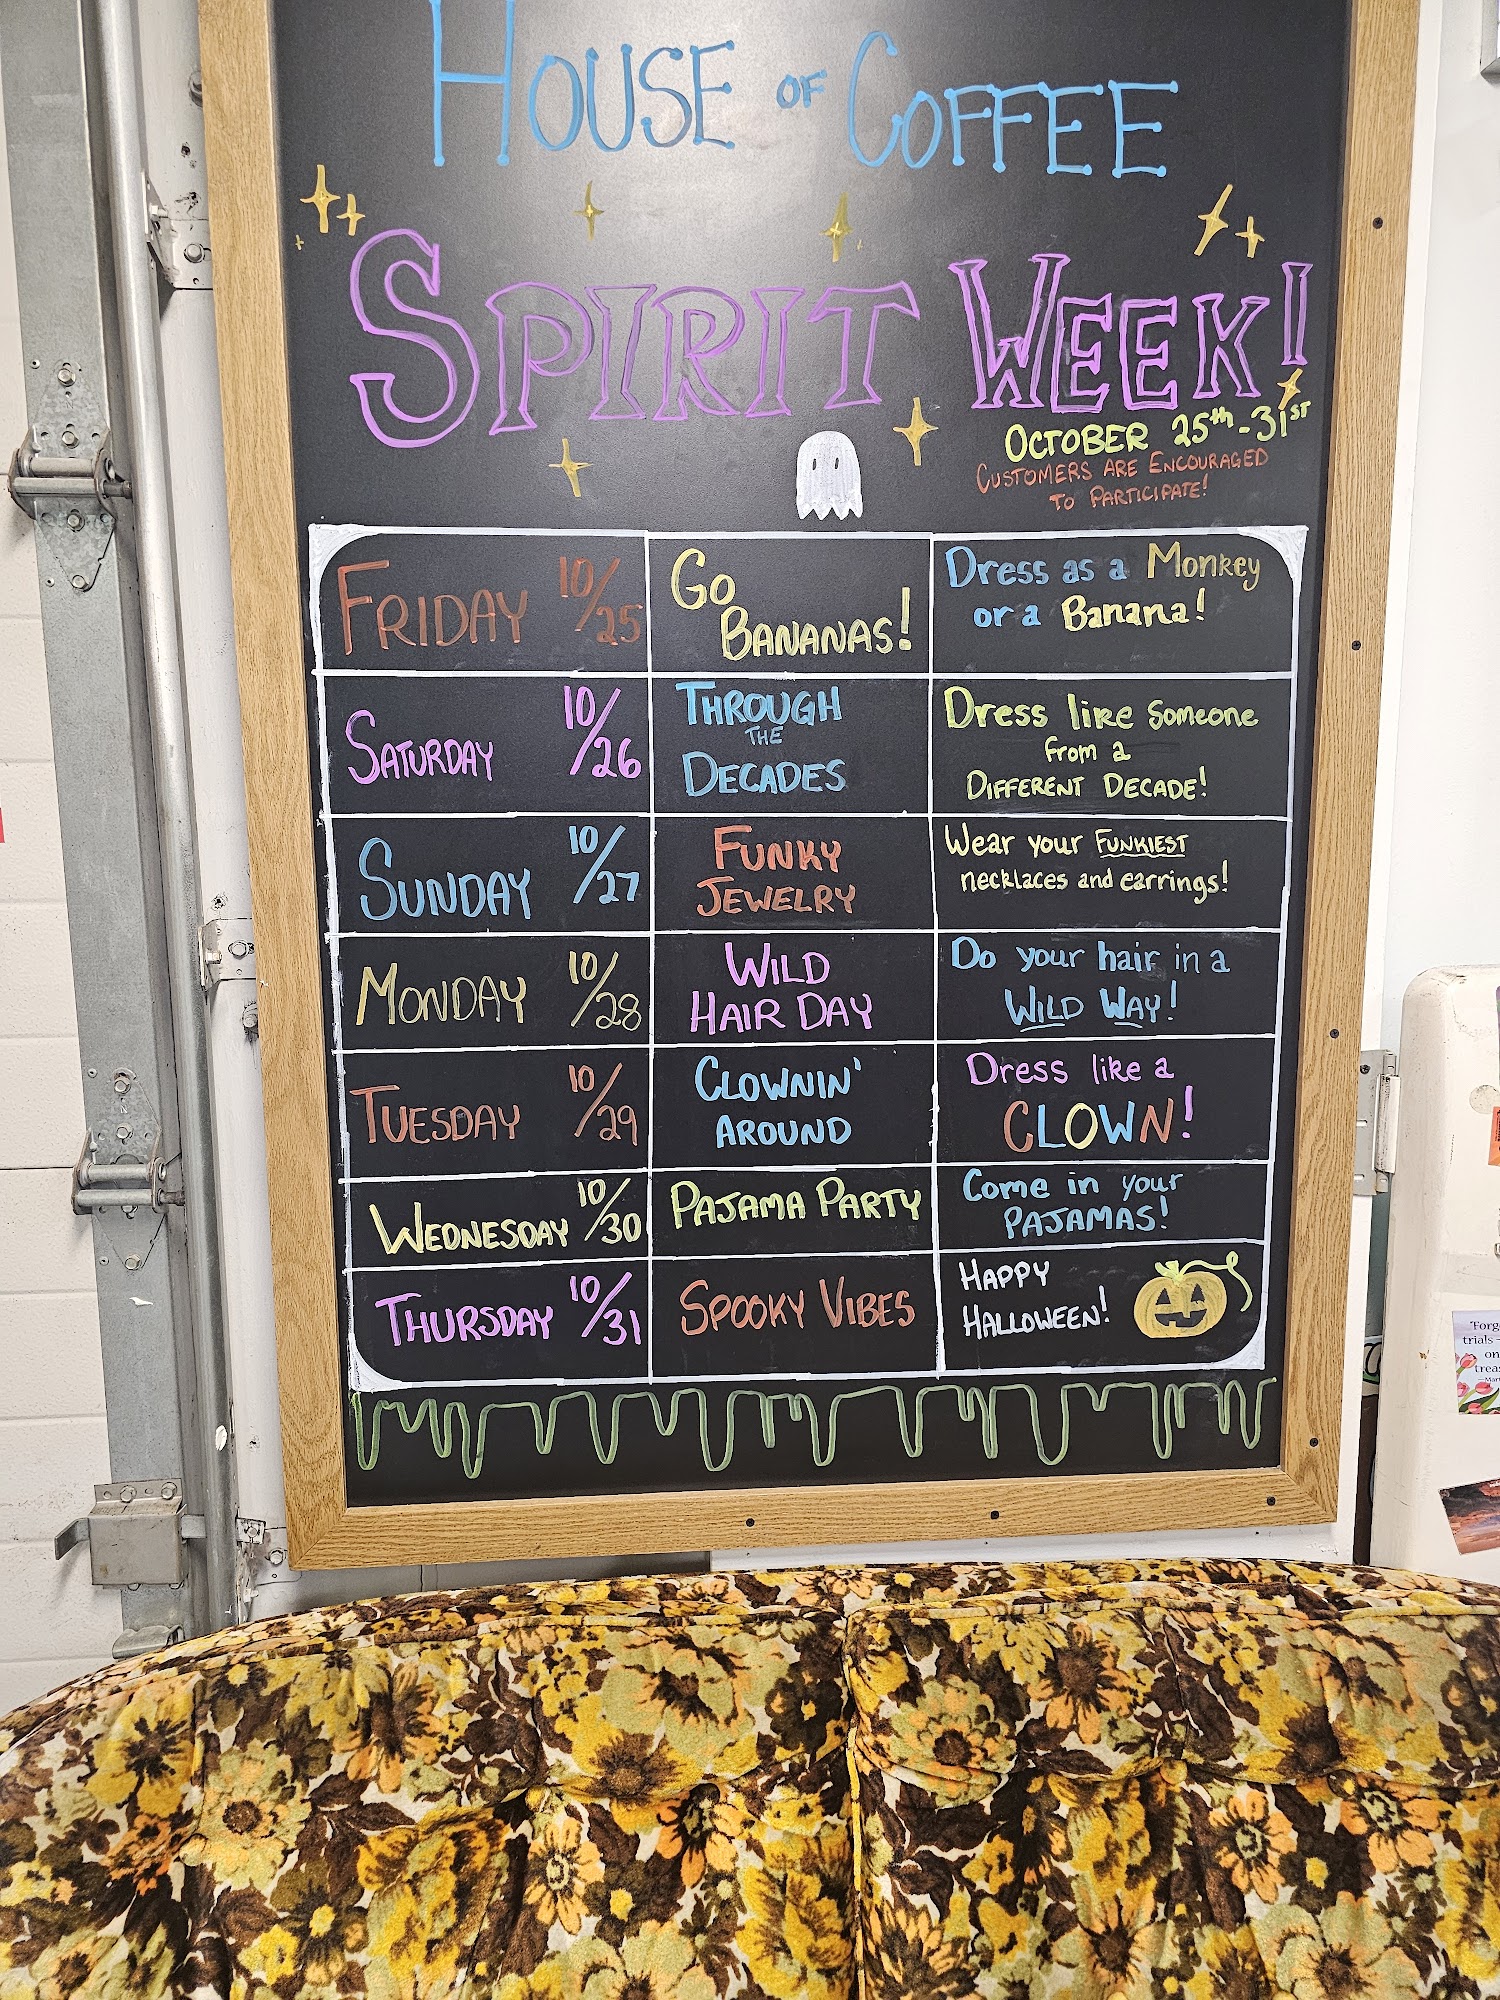 HOUSE OF COFFEE
SPIRIT WEEK!
OCTOBER 25th-31ST
CUSTOMERS ARE ENCOURAGED
TO PARTICIPATE!
FRIDAY 10/25
GO
BANANAS!
Dress as a Monkey
or a Banana!
SATURDAY 10/26
THROUGH
THE
DECADES
Dress like Someone
from a
DIFFERENT DECADE!
SUNDAY 10/27
FUNKY
JEWELRY
Wear your FUNKIEST
necklaces and earrings!
MONDAY 10/28
WILD
HAIR DAY
Do your hair in a
WILD WAY!
TUESDAY 10/29
CLOWNIN'
AROUND
Dress like a
CLOWN!
WEDNESDAY 10/30
PAJAMA PARTY
Come in your
PAJAMAS!
THURSDAY 10/31
SPOOKY VIBES
HAPPY
HALLOWEEN!
trials
on